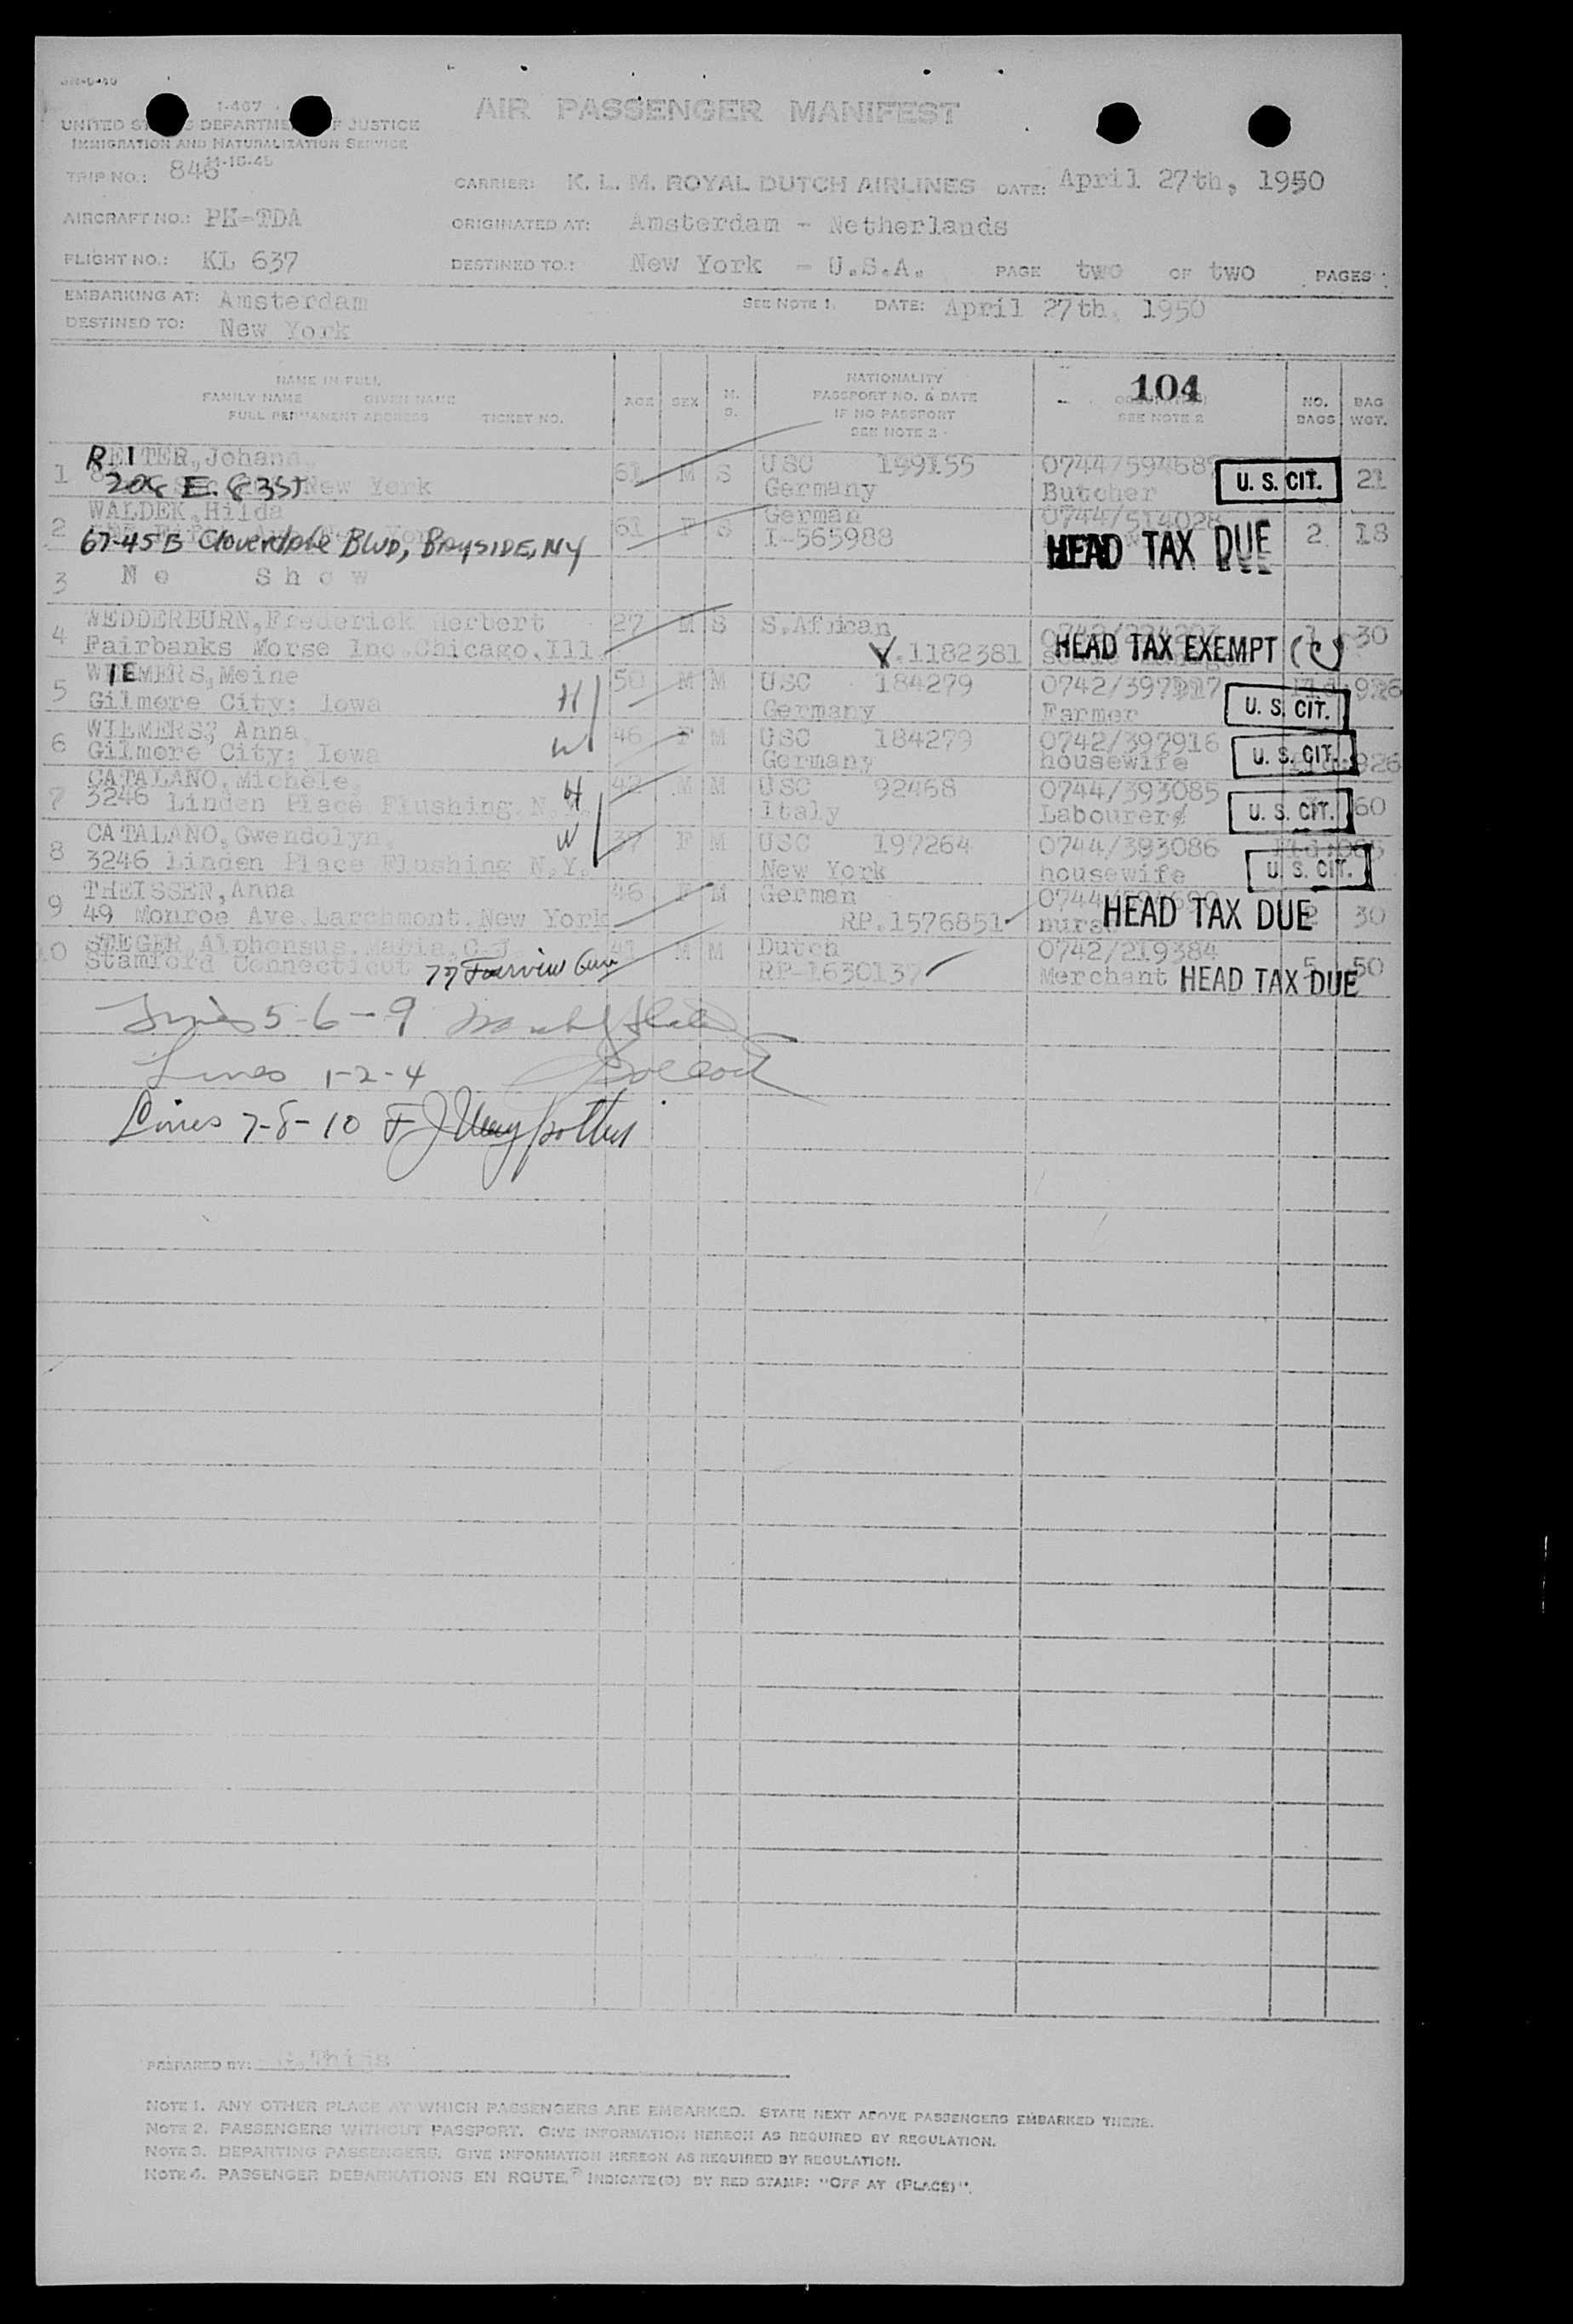 I-467
UNITED STATES DEPARTMENT OF JUSTICE
IMMIGRATION AND NATURALIZATION SERVICE
11-16-45
AIR PASSENGER MANIFEST
TRIP NO.: 846
CARRIER: K. L. M. ROYAL DUTCH AIRLINES DATE: April 27th, 1950
AIRCRAFT NO.: PH-TDA ORIGINATED AT: Amsterdam - Netherlands
FLIGHT NO.: KL 637 DESTINED TO.: New York - U.S.A. PAGE two OF two PAGES
EMBARKING AT: Amsterdam SEE NOTE 1. DATE: April 27th, 1950
DESTINED TO: New York
NAME IN FULL
FAMILY NAME GIVEN NAME
FULL PERMANENT ADDRESS TICKET NO.
AGE SEX M. S.
NATIONALITY
PASSPORT NO. & DATE
IF NO PASSPORT
SEE NOTE 2
104
SEE NOTE 2
NO. BAGS
BAG WGT.
1 REITER, Johann 61 M S USC 199155 0744/59468
208 E. 83 ST New York Germany Butcher U. S. CIT. 21
2 WALDEK, Hilda 61 F S German 0744/514028
67-45B Cloverdale BLVD, BAYSIDE, NY I-565988 HEAD TAX DUE 2 18
3 No Show
4 WEDDERBURN, Frederick Herbert 27 M S S.African
Fairbanks Morse Inc. Chicago. Ill. V.1182381 HEAD TAX EXEMPT 1 30
5 WIEMERS, Meine H 50 M M USC 184279 0742/397917
Gilmore City: Iowa Germany Farmer U. S. CIT. 926
6 WILMERS, Anna 46 F M USC 184279 0742/397916
Gilmore City: Iowa W Germany housewife U. S. CIT. 926
7 CATALANO, Michele, H 42 M M USC 92468 0744/393085
3246 Linden Place Flushing N.Y. Italy Labourer U. S. CIT. 60
8 CATALANO, Gwendolyn W 37 F M USC 197264 0744/393086
3246 Linden Place Flushing N.Y. New York housewife U. S. CIT.
9 THEISSEN, Anna 46 F M German
49 Monroe Ave. Larchmont. New York RP.1576851 HEAD TAX DUE 2 30
10 STEGER, Alphonsus. Maria. C.J. 41 M M Dutch 0742/219384
Stamford Connecticut RP-1630137 Merchant HEAD TAX DUE 5 50
Lines 5-6-9
Lines 1-2-4
Lines 7-8-10
PREPARED BY: G.Thijs
NOTE 1. ANY OTHER PLACE AT WHICH PASSENGERS ARE EMBARKED. STATE NEXT ABOVE PASSENGERS EMBARKED THERE.
NOTE 2. PASSENGERS WITHOUT PASSPORT. GIVE INFORMATION HEREON AS REQUIRED BY REGULATION.
NOTE 3. DEPARTING PASSENGERS. GIVE INFORMATION HEREON AS REQUIRED BY REGULATION.
NOTE 4. PASSENGER DEBARKATIONS EN ROUTE, INDICATE(D) BY RED STAMP: "OFF AT (PLACE)".